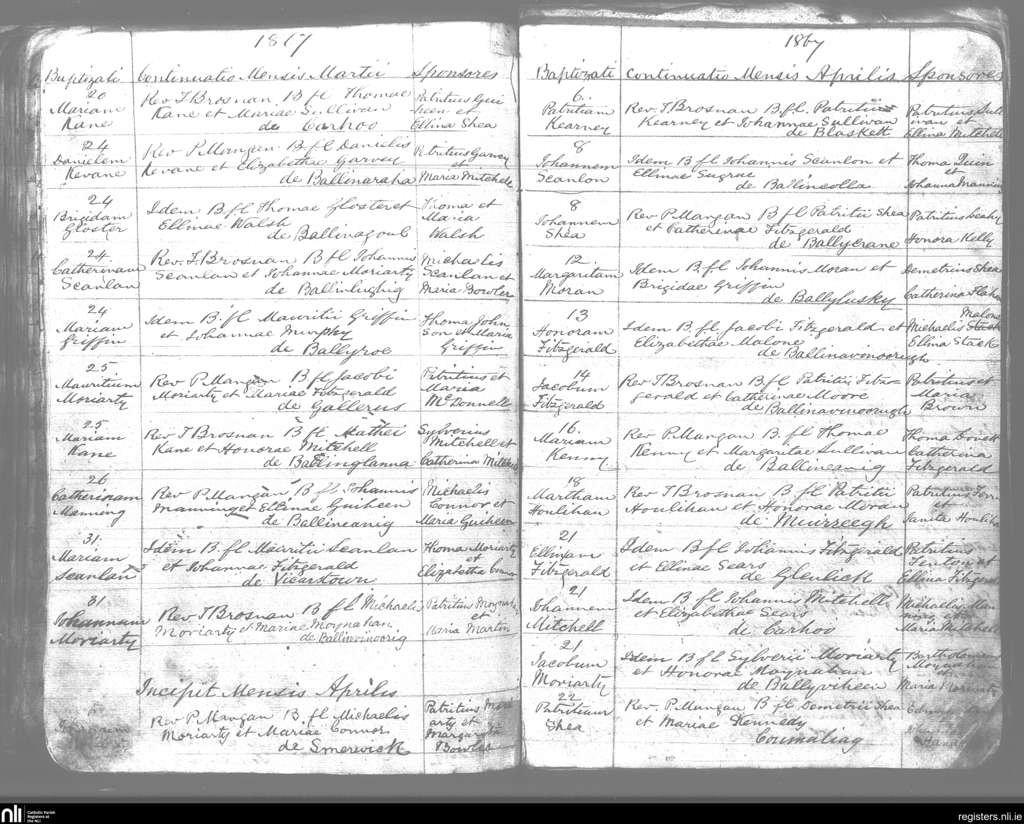 1867
Baptizati Continuatio Mensis Martii Sponsores
20
Mariam
Kane
Rev T Brosnan B fl Thomae
Kane et Mariae Sullivan
de Carhoo
Patritius Gui
heen et
Ellina Shea
24
Danielem
Kevane
Rev P. Mangan B fl Danielis
Kevane et Elizabethae Garvey
de Ballinaraha
Patritius Garvey
et
Maria Mitchell
24
Brigidam
Gloster
Idem B fl Thomae Gloster et
Ellinae Walsh
de Ballinagoul
Thoma et
Maria
Walsh
24
Catherinam
Scanlan
Rev. T. Brosnan B fl Johannis
Scanlan et Johannae Moriarty
de Ballinlughig
Michaelis
Scanlan et
Maria Bowler
24
Mariam
Griffin
Idem B. fl Mauritii Griffin
et Johannae Murphy
de Ballyroe
Thoma John
Son et Maria
Griffin
25
Mauritium
Moriarty
Rev P Mangan B fl Jacobi
Moriarty et Mariae Fitzgerald
de Gallerus
Patritius et
Maria
McDonnell
25
Mariam
Kane
Rev T Brosnan B fl Mathei
Kane et Honorae Mitchell
de Ballinglanna
Sylverius
Mitchell et
Catherina Mitchell
26
Catherinam
Manning
Rev P. Mangan B fl Johannis
Manning et Ellinae Guiheen
de Ballineanig
Michaelis
Connor et
Maria Guiheen
31
Mariam
Scanlan
Idem B. fl Mauritii Scanlan
et Johannae Fitzgerald
de Vicarstown
Thoma Moriarty
et
Elizabetha Connor
31
Johannam
Moriarty
Rev T Brosnan B fl Michaelis
Moriarty et Mariae Moynahan
de Ballinvinorig
Patritius Moynahan
et
Maria Martin
Incipit Mensis Aprilis
Rev P. Mangan B. fl Michaelis
Moriarty et Mariae Connor
de Smerwick
Patritius Mori
arty et
Margarita
Bowler
1867
Baptizati Continuatio Mensis Aprilis Sponsores
6.
Patritium
Kearney
Rev T. Brosnan B fl. Patritii
Kearney et Johannae Sullivan
de Blaskett
Patritius Sull
ivan et
Ellina Mitchell
8
Johannem
Scanlon
Idem B fl Johannis Scanlon et
Ellinae Sugrue
de Ballineolla
Thoma Quin
et
Johanna Manning
8
Johannem
Shea
Rev P. Mangan B fl Patritii Shea
et Catherinae Fitzgerald
de Ballycrane
Patritius Leahy
Honora Kelly
12
Margaritam
Moran
Idem B. fl Johannis Moran et
Brigidae Griffin
de Ballylusky
Demetrius Shea
Catherina
13
Honoram
Fitzgerald
Idem B. fl Jacobi Fitzgerald et
Elizabethae Malone
de Ballinavinoorigh
Malone
Michaelis Stack
Ellina Stack
14
Jacobum
Fitzgerald
Rev T Brosnan B fl Patritii Fitzg
gerald et Catherinae Moore
de Ballinavinoorigh
Patritius et
Maria
Brown
16.
Mariam
Kenny
Rev P. Mangan B. fl Thomae
Kenny et Margaritae Sullivan
de Ballineanig
Thoma
Catherina
Fitzgerald
18
Martham
Houlihan
Rev T Brosnan B fl Patritii
Houlihan et Honorae Moran
de Muirreegh
Patritius
et
Houlihan
21
Ellinam
Fitzgerald
Idem B fl Johannis Fitzgerald
et Ellinae Sears
de Glenlick
Patritius
Fenton et
Ellina Fitzgerald
21
Johannem
Mitchell
Idem B fl Johannis Mitchell
et Elizabethae Sears
de Carhoo
Michaelis
Maria Mitchell
21
Jacobum
Moriarty
Idem B fl Sylverii Moriarty
et Honorae Moynahan
de Ballyviheen
Maria Moriarty
22
Patritium
Shea
Rev. P. Mangan B fl Demetrii Shea
et Mariae Kennedy
Coumaliag
nli Catholic Parish
Registers at
the NLI
registers.nli.ie